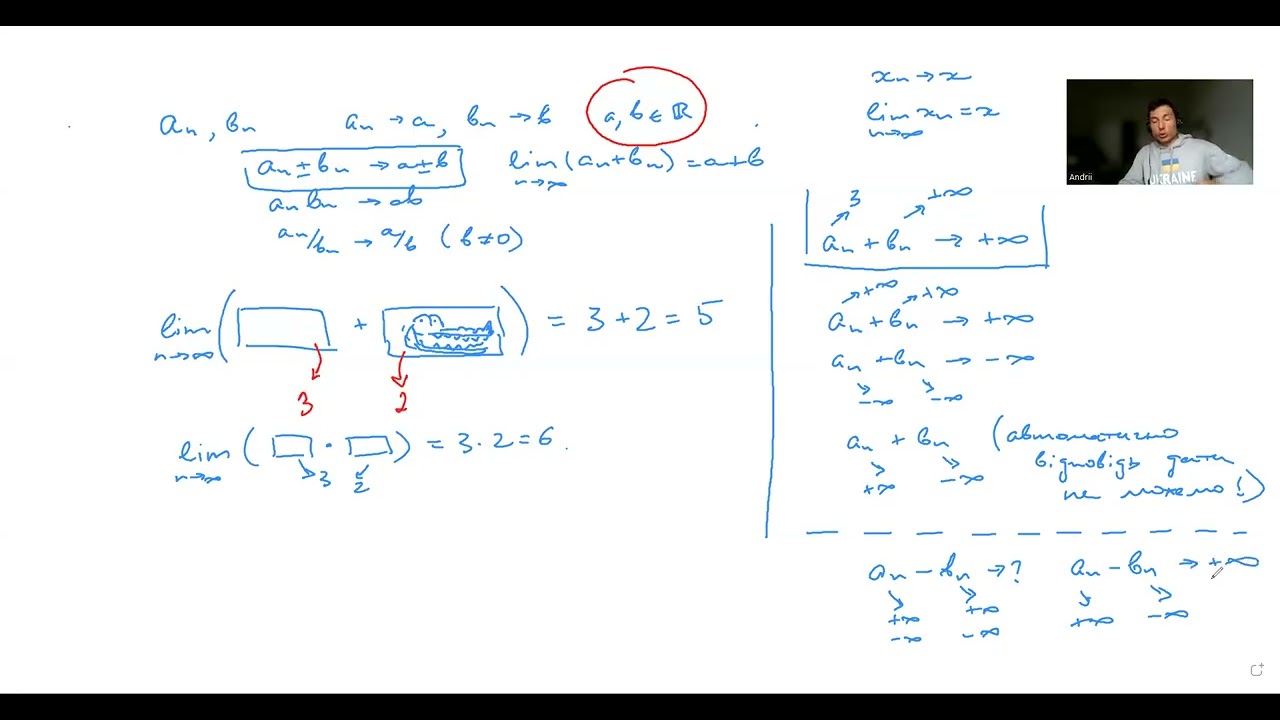 aₙ, bₙ   aₙ → a, bₙ → b   a, b ∈ ℝ
aₙ ± bₙ → a ± b   lim (aₙ + bₙ) = a + b
n→∞
aₙ bₙ → ab
aₙ/bₙ → a/b (b ≠ 0)
lim ( + ) = 3 + 2 = 5
n→∞
3   2
lim ( · ) = 3 · 2 = 6.
n→∞   3   2
xₙ → x
lim xₙ = x
n→∞
Andrii
UKRAINE
3   +∞
aₙ + bₙ → +∞
+∞   +∞
aₙ + bₙ → +∞
aₙ + bₙ → -∞
-∞   -∞
aₙ + bₙ   (автоматично
відповідь дати
не можемо!)
+∞   -∞
aₙ - bₙ → ?   aₙ - bₙ → +∞
+∞   +∞   +∞   -∞
-∞   -∞